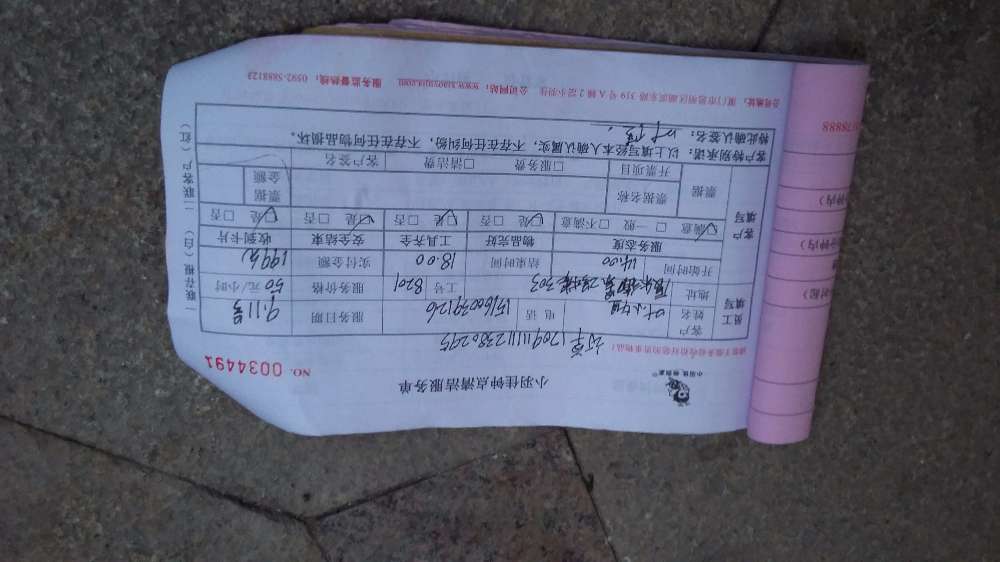 小羽佳钟点清洁服务单
NO. 0034491
订单1209111112380295
员工填写
客户姓名 叶小姐 电话 15160039126 服务日期 9.11号
地址 303 工号 8201 服务价格 50元/小时
开始时间 14.00 结束时间 18.00 实付金额 199元
客户填写
服务态度 物品完好 工具齐全 安全结束 收到卡片
☑满意 □一般 □不满意 ☑是 □否 ☑是 □否 ☑是 □否 ☑是 □否
票据 票据名称 票据金额
开票项目 □服务费 □清洁费 客户签名
客户特别承诺：以上填写经本人确认属实，不存在任何纠纷，不存在任何物品损坏。
特此确认签名：
公司地址：厦门市思明区湖滨东路319号A幢2层小羽佳 公司网站：www.xiaoyujia.com 服务监督热线：0592-5888123
一联存根（白） 二联客户（红）
78888